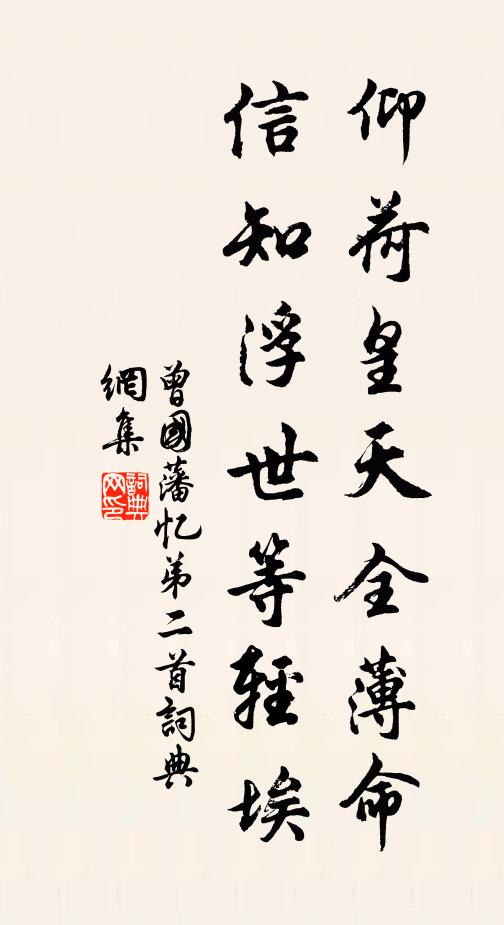 仰荷皇天全薄命
信知浮世等輕埃
曾國藩忆弟二首詞典
網集
詞典
网印